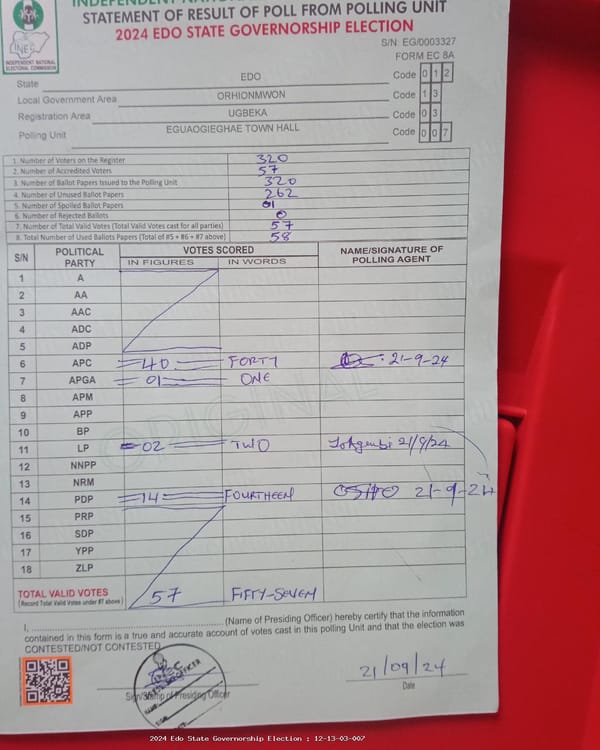 STATEMENT OF RESULT OF POLL FROM POLLING UNIT
2024 EDO STATE GOVERNORSHIP ELECTION
S/N: EG/0003327
FORM EC 8A
INEC
INDEPENDENT NATIONAL
ELECTORAL COMMISSION
State EDO Code 0 1 2
Local Government Area ORHIONMWON Code 1 3
Registration Area UGBEKA Code 0 3
Polling Unit EGUAOGIEGHAE TOWN HALL Code 0 0 7
1. Number of Voters on the Register 320
2. Number of Accredited Voters 57
3. Number of Ballot Papers Issued to the Polling Unit 320
4. Number of Unused Ballot Papers 262
5. Number of Spoiled Ballot Papers 01
6. Number of Rejected Ballots 0
7. Number of Total Valid Votes (Total Valid Votes cast for all parties) 57
8. Total Number of Used Ballots Papers (Total of #5 + #6 + #7 above) 58
S/N POLITICAL PARTY VOTES SCORED NAME/SIGNATURE OF POLLING AGENT
IN FIGURES IN WORDS
1 A
2 AA
3 AAC
4 ADC
5 ADP
6 APC 40 FORTY 21-9-24
7 APGA 01 ONE
8 APM
9 APP
10 BP
11 LP 02 TWO 21/9/24
12 NNPP
13 NRM
14 PDP 14 FOURTHEEN 21-9-24
15 PRP
16 SDP
17 YPP
18 ZLP
TOTAL VALID VOTES 57 FIFTY-SEVEN
(Record Total Valid Votes under #7 above)
ORIGINAL
I, (Name of Presiding Officer) hereby certify that the information
contained in this form is a true and accurate account of votes cast in this polling Unit and that the election was
CONTESTED/NOT CONTESTED
21/09/24
Sign/Stamp of Presiding Officer Date
2024 Edo State Governorship Election : 12-13-03-007